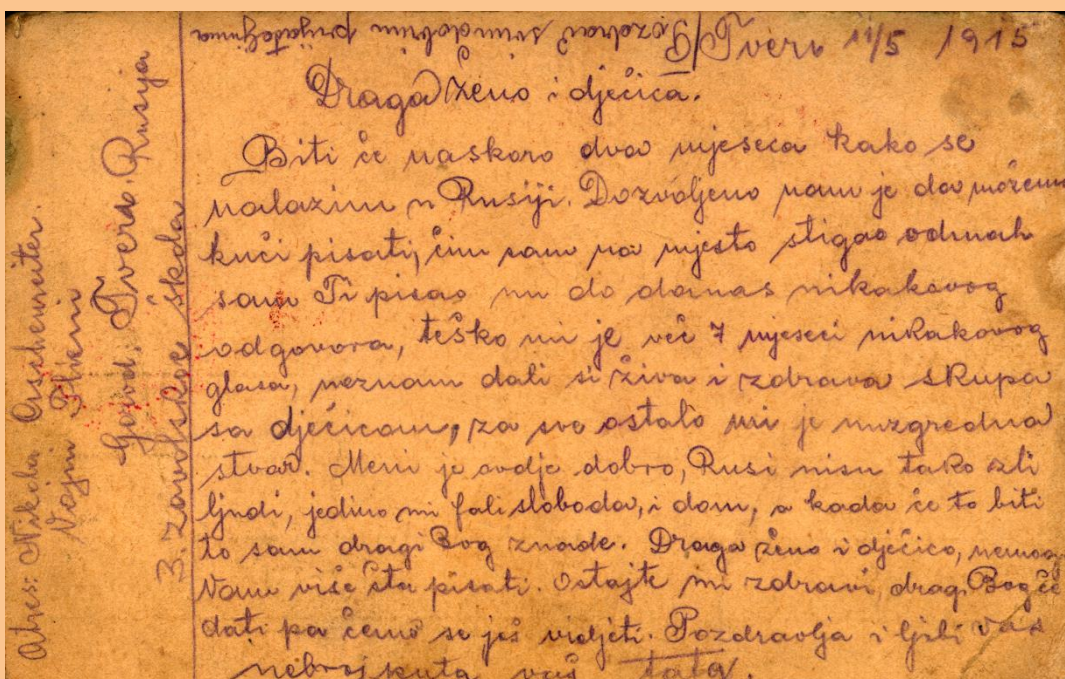 Tverь 11/5 1915
Pozdravi svim dobrim prijateljima
Draga ženo i dječica.
Biti će naskoro dva mjeseca kako se
nalazim u Rusiji. Dozvoljeno nam je da možemo
kući pisati, čim sam na mjesto stigao odmah
sam Ti pisao ni do danas nikakovog
odgovora, teško mi je već 7 mjeseci nikakovog
glasa, neznam dali si živa i zdrava skupa
sa dječicom, za svo ostalo mi je nuzgredna
stvar. Meni je ovdje dobro, Rusi nisu tako zli
ljudi, jedino mi fali sloboda, i dom, a kada će to biti
to sam dragi Bog znade. Draga ženo i dječico, nemogu
Vam više šta pisati. Ostajte mi zdravi, dragi Bog će
dati pa ćemo se još vidjeti. Pozdravlja i ljubi vas
nebrojkuta vaš tata.
Adres: Nikola
Vojni Pljeni
Gorod, Tverь Rusija
3. škola